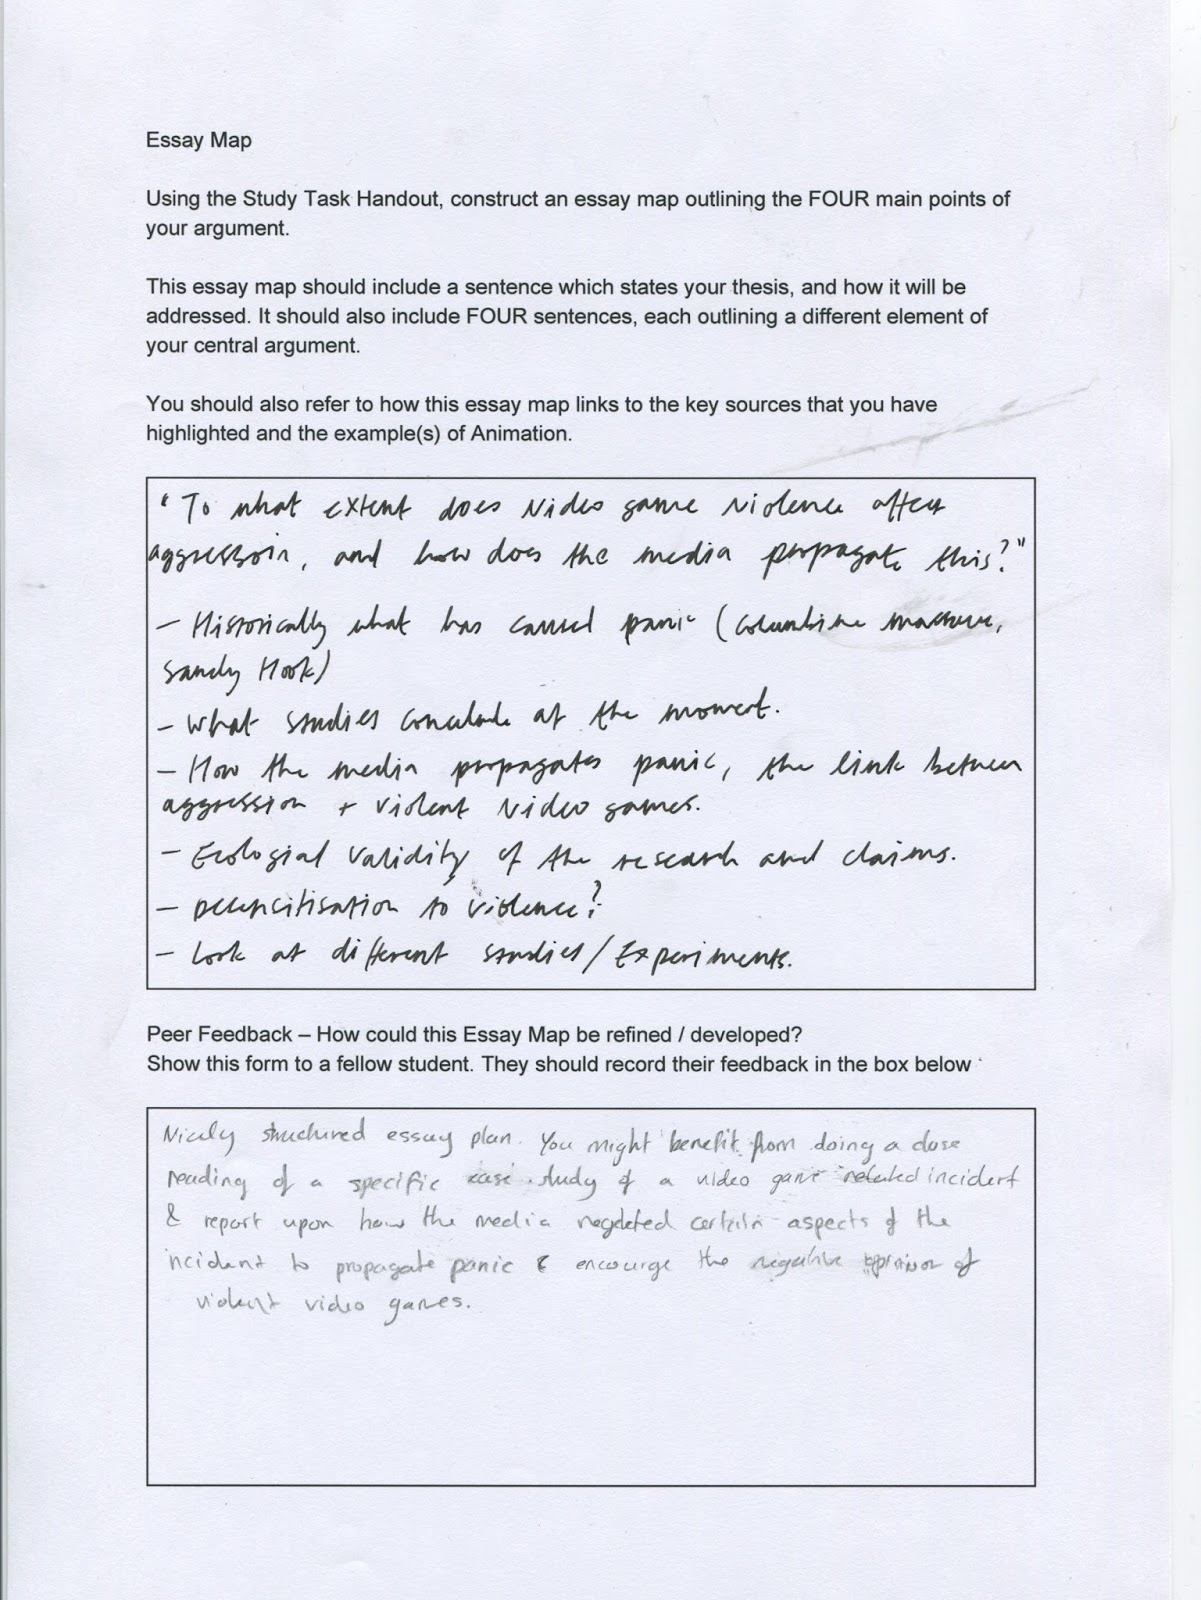 Essay Map
Using the Study Task Handout, construct an essay map outlining the FOUR main points of
your argument.
This essay map should include a sentence which states your thesis, and how it will be
addressed. It should also include FOUR sentences, each outlining a different element of
your central argument.
You should also refer to how this essay map links to the key sources that you have
highlighted and the example(s) of Animation.
"To what extent does video game violence affect
aggression, and how does the media propagate this?"
- Historically what has caused panic (Columbine massacre,
Sandy Hook)
- What studies conclude at the moment.
- How the media propagates panic, the link between
aggression + violent video games.
- Ecological validity of the research and claims.
- Desencitisation to violence?
- Look at different studies/Experiments.
Peer Feedback – How could this Essay Map be refined / developed?
Show this form to a fellow student. They should record their feedback in the box below
Nicely structured essay plan. You might benefit from doing a close
reading of a specific case study of a video game related incident
& report upon how the media neglected certain aspects of the
incident to propagate panic & encourge the negative opinion of
violent video games.